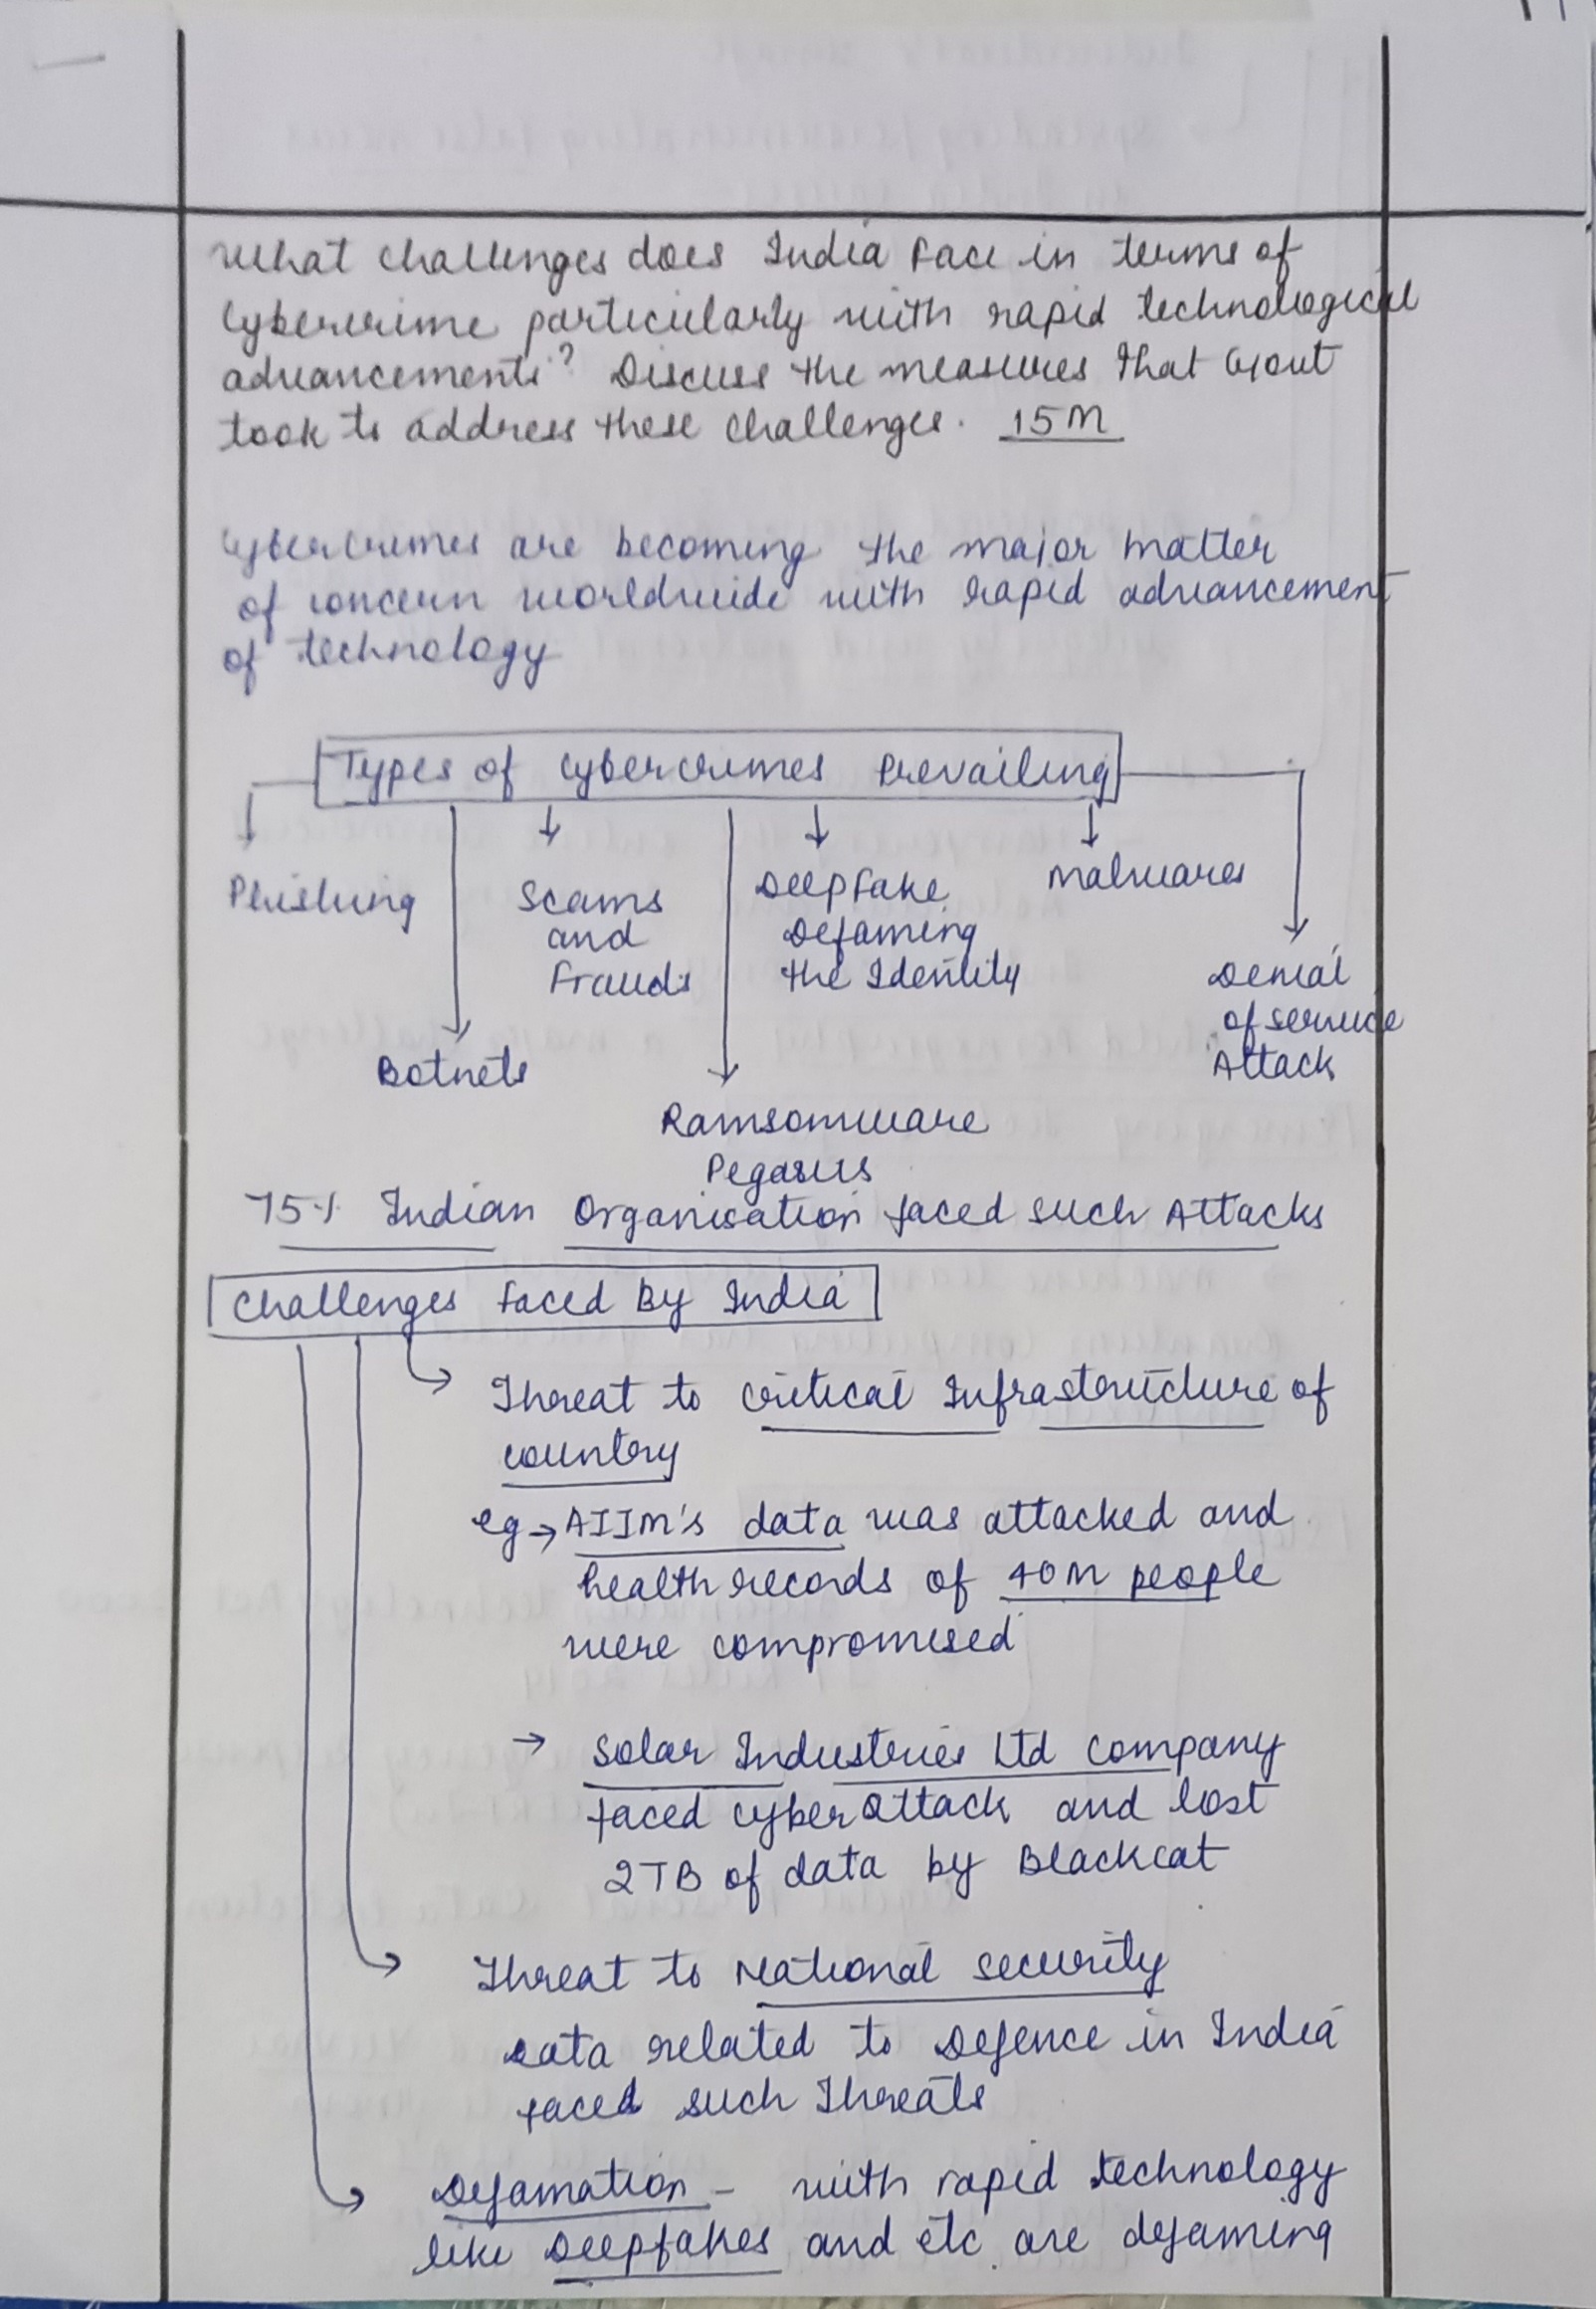 What challenges does India face in terms of
cybercrime particularly with rapid technological
advancements? Discuss the measures that Govt
took to address these challenges. 15M
Cybercrimes are becoming the major matter
of concern worldwide with rapid advancement
of technology
Types of cybercrimes Prevailing
Phishing
Botnets
Scams
and
Frauds
Ramsomware
Pegasus
Deepfake
Defaming
the Identity
Malwares
Denial
of service
Attack
75% Indian Organisation faced such Attacks
Challenges faced By India
Threat to critical Infrastructure of
country
eg → AIIM's data was attacked and
health records of 40M people
were compromised
→ Solar Industries Ltd company
faced cyber attack and lost
2TB of data by Blackcat
Threat to National security
data related to Defence in India
faced such Threats
Defamation - with rapid technology
like Deepfakes and etc are defaming